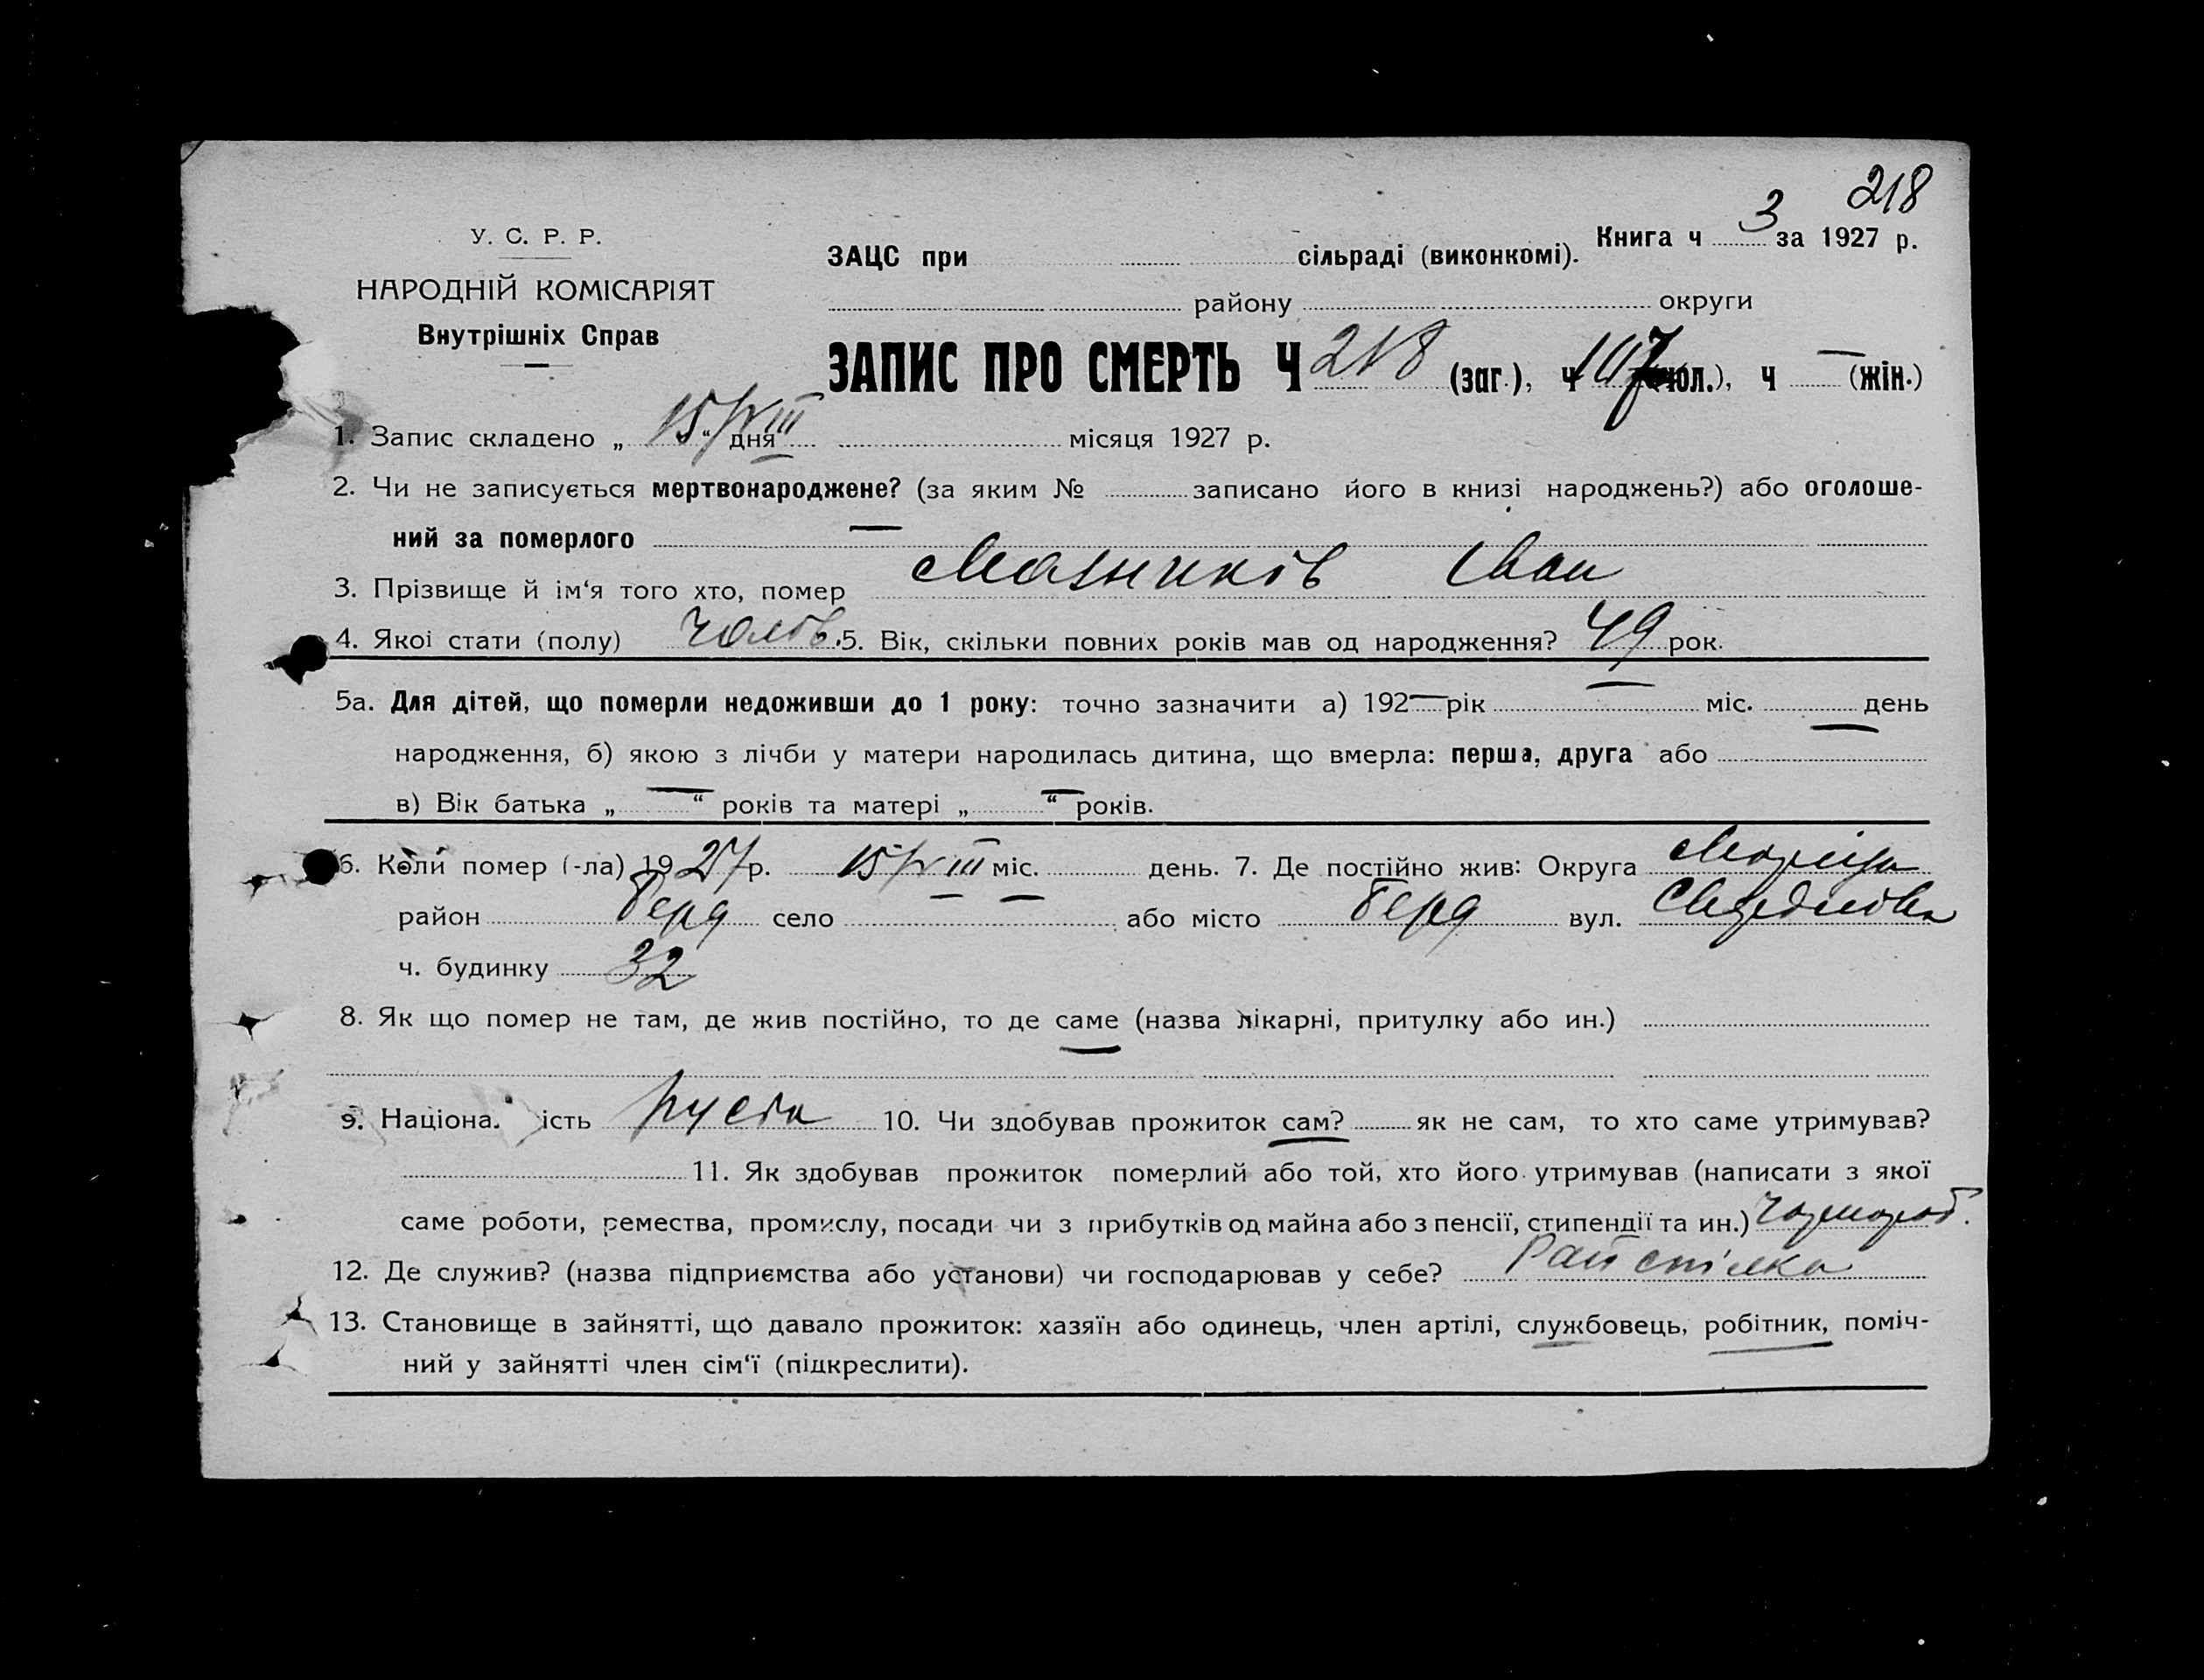 218
У. С. Р. Р.
НАРОДНІЙ КОМІСАРІЯТ
Внутрішніх Справ
ЗАЦС при сільраді (виконкомі). Книга ч 3 за 1927 р.
району округи
ЗАПИС ПРО СМЕРТЬ Ч 218 (заг.), ч 107 (чол.), ч — (жін.)
1. Запис складено „ 15/VIII “ дня місяця 1927 р.
2. Чи не записується мертвонароджене? (за яким № записано його в книзі народжень?) або оголоше-
ний за померлого —
3. Прізвище й ім‘я того хто, помер Іван
4. Якої стати (полу) чолов. 5. Вік, скільки повних років мав од народження? 49 рок.
5а. Для дітей, що померли недоживши до 1 року: точно зазначити а) 192— рік — міс. — день
народження, б) якою з лічби у матери народилась дитина, що вмерла: перша, друга або
в) Вік батька „ — “ років та матері „ — “ років.
6. Коли помер (-ла) 1927 р. 15/VIII міс. день. 7. Де постійно жив: Округа
район Берд село або місто Берд вул.
ч. будинку 32
8. Як що помер не там, де жив постійно, то де саме (назва лікарні, притулку або ин.)
9. Націона ість 10. Чи здобував прожиток сам? як не сам, то хто саме утримував?
11. Як здобував прожиток померлий або той, хто його утримував (написати з якої
саме роботи, ремества, промислу, посади чи з прибутків од майна або з пенсії, стипендії та ин.) чорнороб.
12. Де служив? (назва підприємства або установи) чи господарював у себе? Райспілка
13. Становище в зайнятті, що давало прожиток: хазяїн або одинець, член артілі, службовець, робітник, поміч-
ний у зайнятті член сім‘ї (підкреслити).